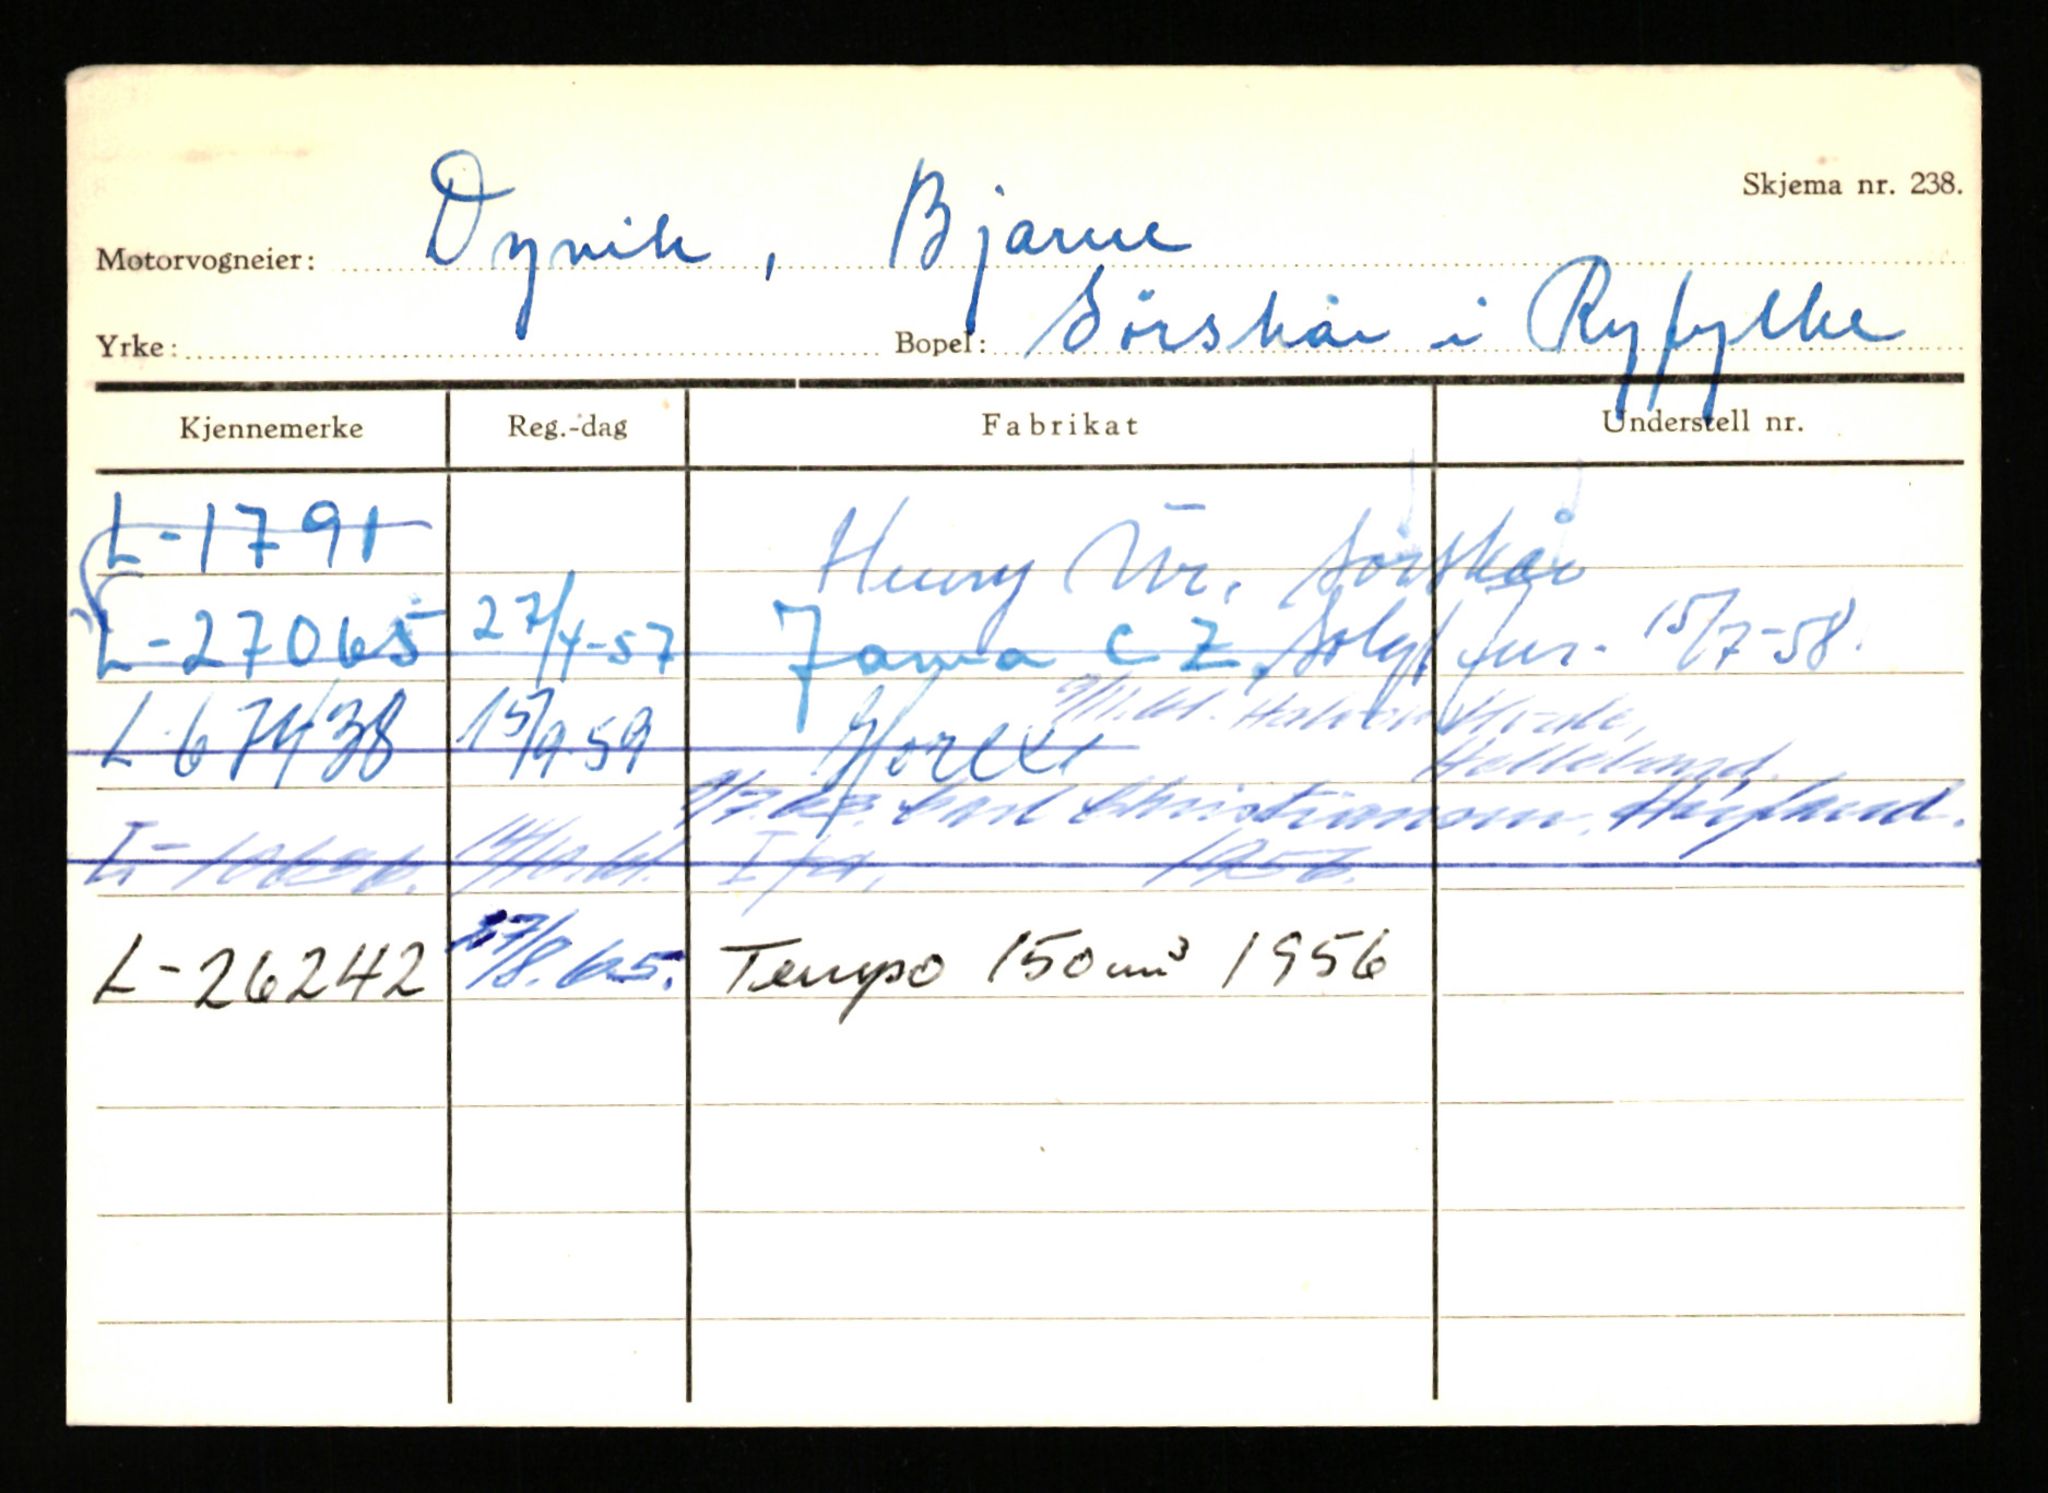 Skjema nr. 238.
Motorvogneier: Dyvik, Bjarne
Yrke: Bopel: Sörskår i Ryfylke
Kjennemerke Reg.-dag Fabrikat Understell nr.
L-1791 Henry Sörskår
L-27065 27/4-57 Jawa CZ. Solgt 15/7-58.
L-67438 15/9-59 Horex
Helleland.
Carl Christiansen,
Ifa, 1956.
L-26242 27/8.65. Tempo 150 cm³ 1956